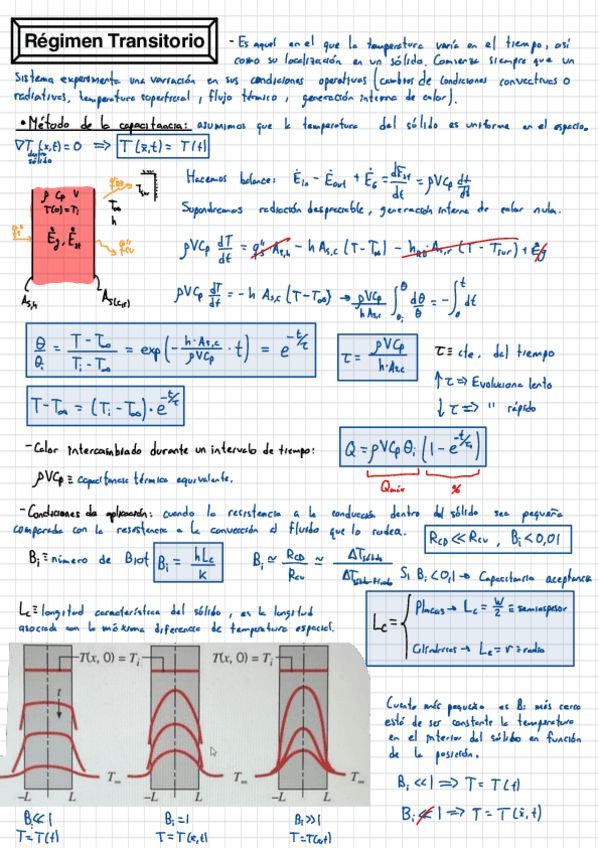 Régimen Transitorio
- Es aquel en el que la temperatura varía en el tiempo, así
como su localización en un sólido. Comienza siempre que un
sistema experimenta una variación en sus condiciones operativas (cambios de condiciones convectivas o
radiativas, temperatura superficial, flujo térmico, generación interna de calor).
• Método de la capacitancia: asumimos que la temperatura del sólido es uniforme en el espacio.
∇T(x,t)=0 ⟹ T(x,t) = T(t)
dentro
sólido
ρ Cp V
T(0)=Ti
Ėg, Ėst
Tsur
T∞
h
As,h
As(c,r)
Hacemos balance: Ėin - Ėout + Ėg = dEst/dt = ρVCp dT/dt
Supondremos radiación despreciable, generación interna de calor nula.
ρVCp dT/dt = q"s As,h - h As,c (T-T∞) - hrad As,r (T-Tsur) + Ėg
ρVCp dT/dt = -h As,c (T-T∞) → ρVCp/hAs,c ∫ dθ/θ = -∫ dt
θ/θi = T-T∞/Ti-T∞ = exp(-h·As,c/ρVCp · t) = e^-t/τ
τ = ρVCp/h·As,c
τ ≡ cte. del tiempo
↑τ ⟹ Evoluciona lento
↓τ ⟹ " rápido
T-T∞ = (Ti-T∞)·e^-t/τ
- Calor intercambiado durante un intervalo de tiempo:
Q = ρVCpθi (1-e^-t/τ)
Qmáx
%
ρVCp ≡ capacitancia térmica equivalente.
- Condiciones de aplicación: cuando la resistencia a la conducción dentro del sólido sea pequeña
comparada con la resistencia a la convección al fluido que lo rodea.
RCD << RCV, Bi < 0,01
Bi ≡ número de Biot
Bi = hLc/K
Bi ≃ RCD/RCV ≃ ΔTsólido/ΔTsólido-fluido
Si Bi<0,1 → Capacitancia aceptamos
Lc ≡ longitud característica del sólido, es la longitud
asociada con la máxima diferencia de temperatura espacial.
Lc =
Placas → Lc = W/2 ≡ semiespesor
Cilíndricas → Lc = r ≡ radio
T(x, 0) = Ti
T(x, 0) = Ti
t
T∞
T∞
T∞
-L L
-L L
-L L
Bi << 1
T = T(t)
Bi = 1
T = T(x,t)
Bi >> 1
T = T(x,t)
Cuanto más pequeño es Bi más cerca
está de ser constante la temperatura
en el interior del sólido en función
de la posición.
Bi << 1 ⟹ T = T(t)
Bi << 1 ⟹ T = T(x,t)